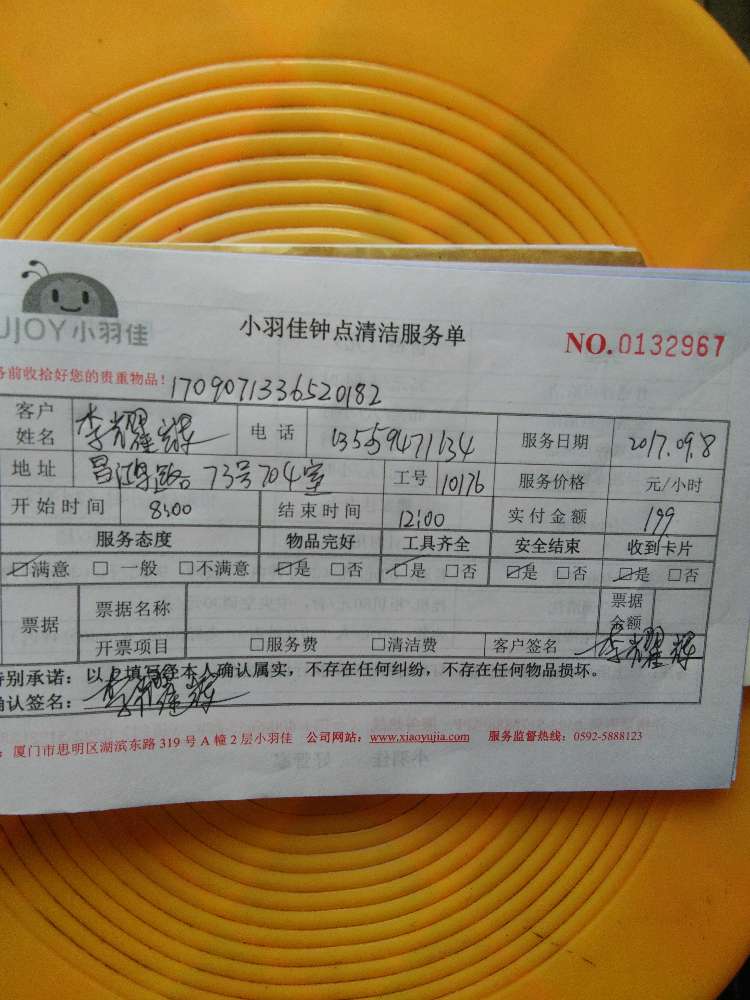 UJOY小羽佳
小羽佳钟点清洁服务单
NO.0132967
务前收拾好您的贵重物品！ 1709071336520182
客户姓名 李耀辉 电话 13559471134 服务日期 2017.09.8
地址 昌鸿路73号704室 工号 10176 服务价格 元/小时
开始时间 8:00 结束时间 12:00 实付金额 199
服务态度 物品完好 工具齐全 安全结束 收到卡片
☑满意 □一般 □不满意 ☑是 □否 ☑是 □否 ☑是 □否 ☑是 □否
票据 票据名称 票据金额
开票项目 □服务费 □清洁费 客户签名 李耀辉
特别承诺：以上填写经本人确认属实，不存在任何纠纷，不存在任何物品损坏。
确认签名： 李耀辉
：厦门市思明区湖滨东路319号A幢2层小羽佳 公司网站：www.xiaoyujia.com 服务监督热线：0592-5888123